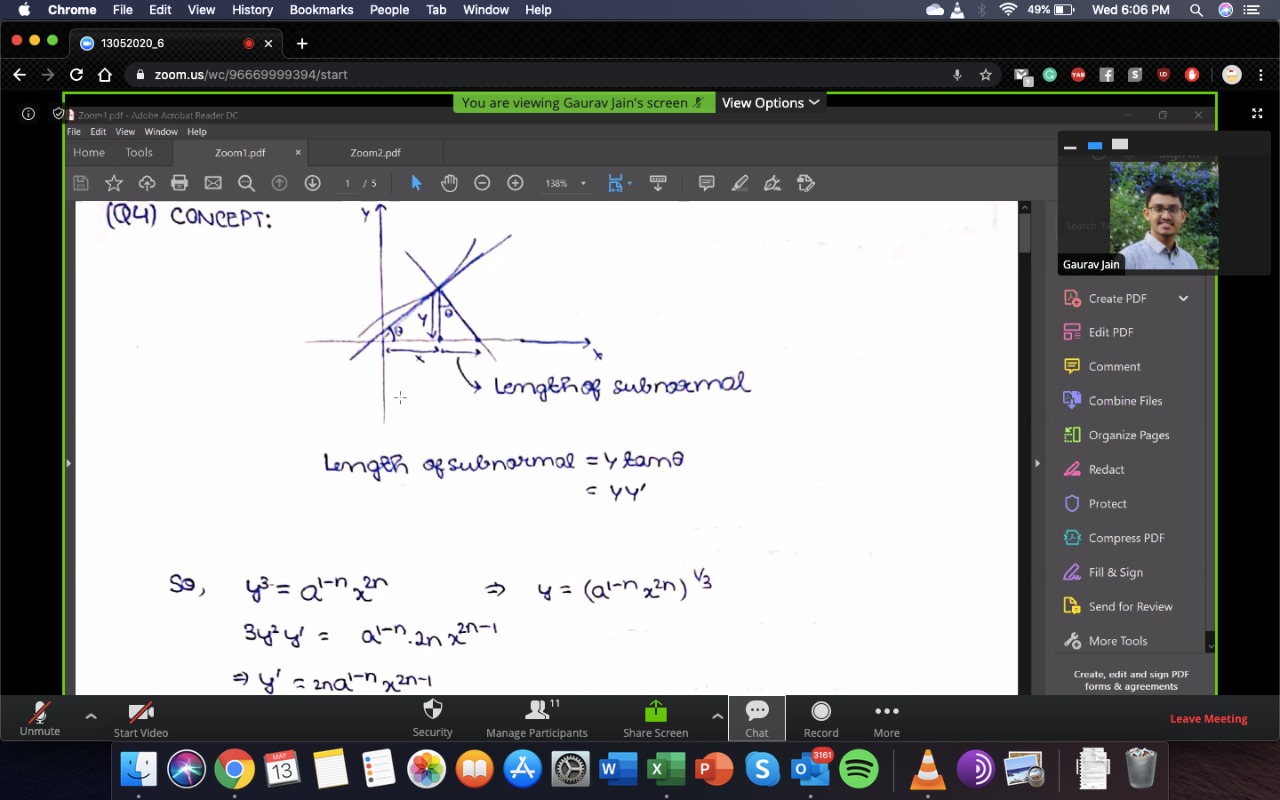 Chrome File Edit View History Bookmarks People Tab Window Help 49% Wed 6:06 PM
13052020_6
zoom.us/wc/96669999394/start
You are viewing Gaurav Jain's screen View Options
Zoom1.pdf - Adobe Acrobat Reader DC
File Edit View Window Help
Home Tools Zoom1.pdf × Zoom2.pdf
1 / 5 138%
(Q4) CONCEPT:
Y
θ
Y
θ
x
x
Length of subnormal
Length of subnormal = Y tanθ
= YY'
So, y³ = a^(1-n) x^(2n) ⇒ y = (a^(1-n) x^(2n))^(1/3)
3y²y' = a^(1-n) . 2n x^(2n-1)
⇒ y' = 2n a^(1-n) x^(2n-1)
Gaurav Jain
Create PDF
Edit PDF
Comment
Combine Files
Organize Pages
Redact
Protect
Compress PDF
Fill & Sign
Send for Review
More Tools
Create, edit and sign PDF
forms & agreements
Unmute Start Video Security Manage Participants 11 Share Screen Chat Record More Leave Meeting
MAY
13
W X P S 3161